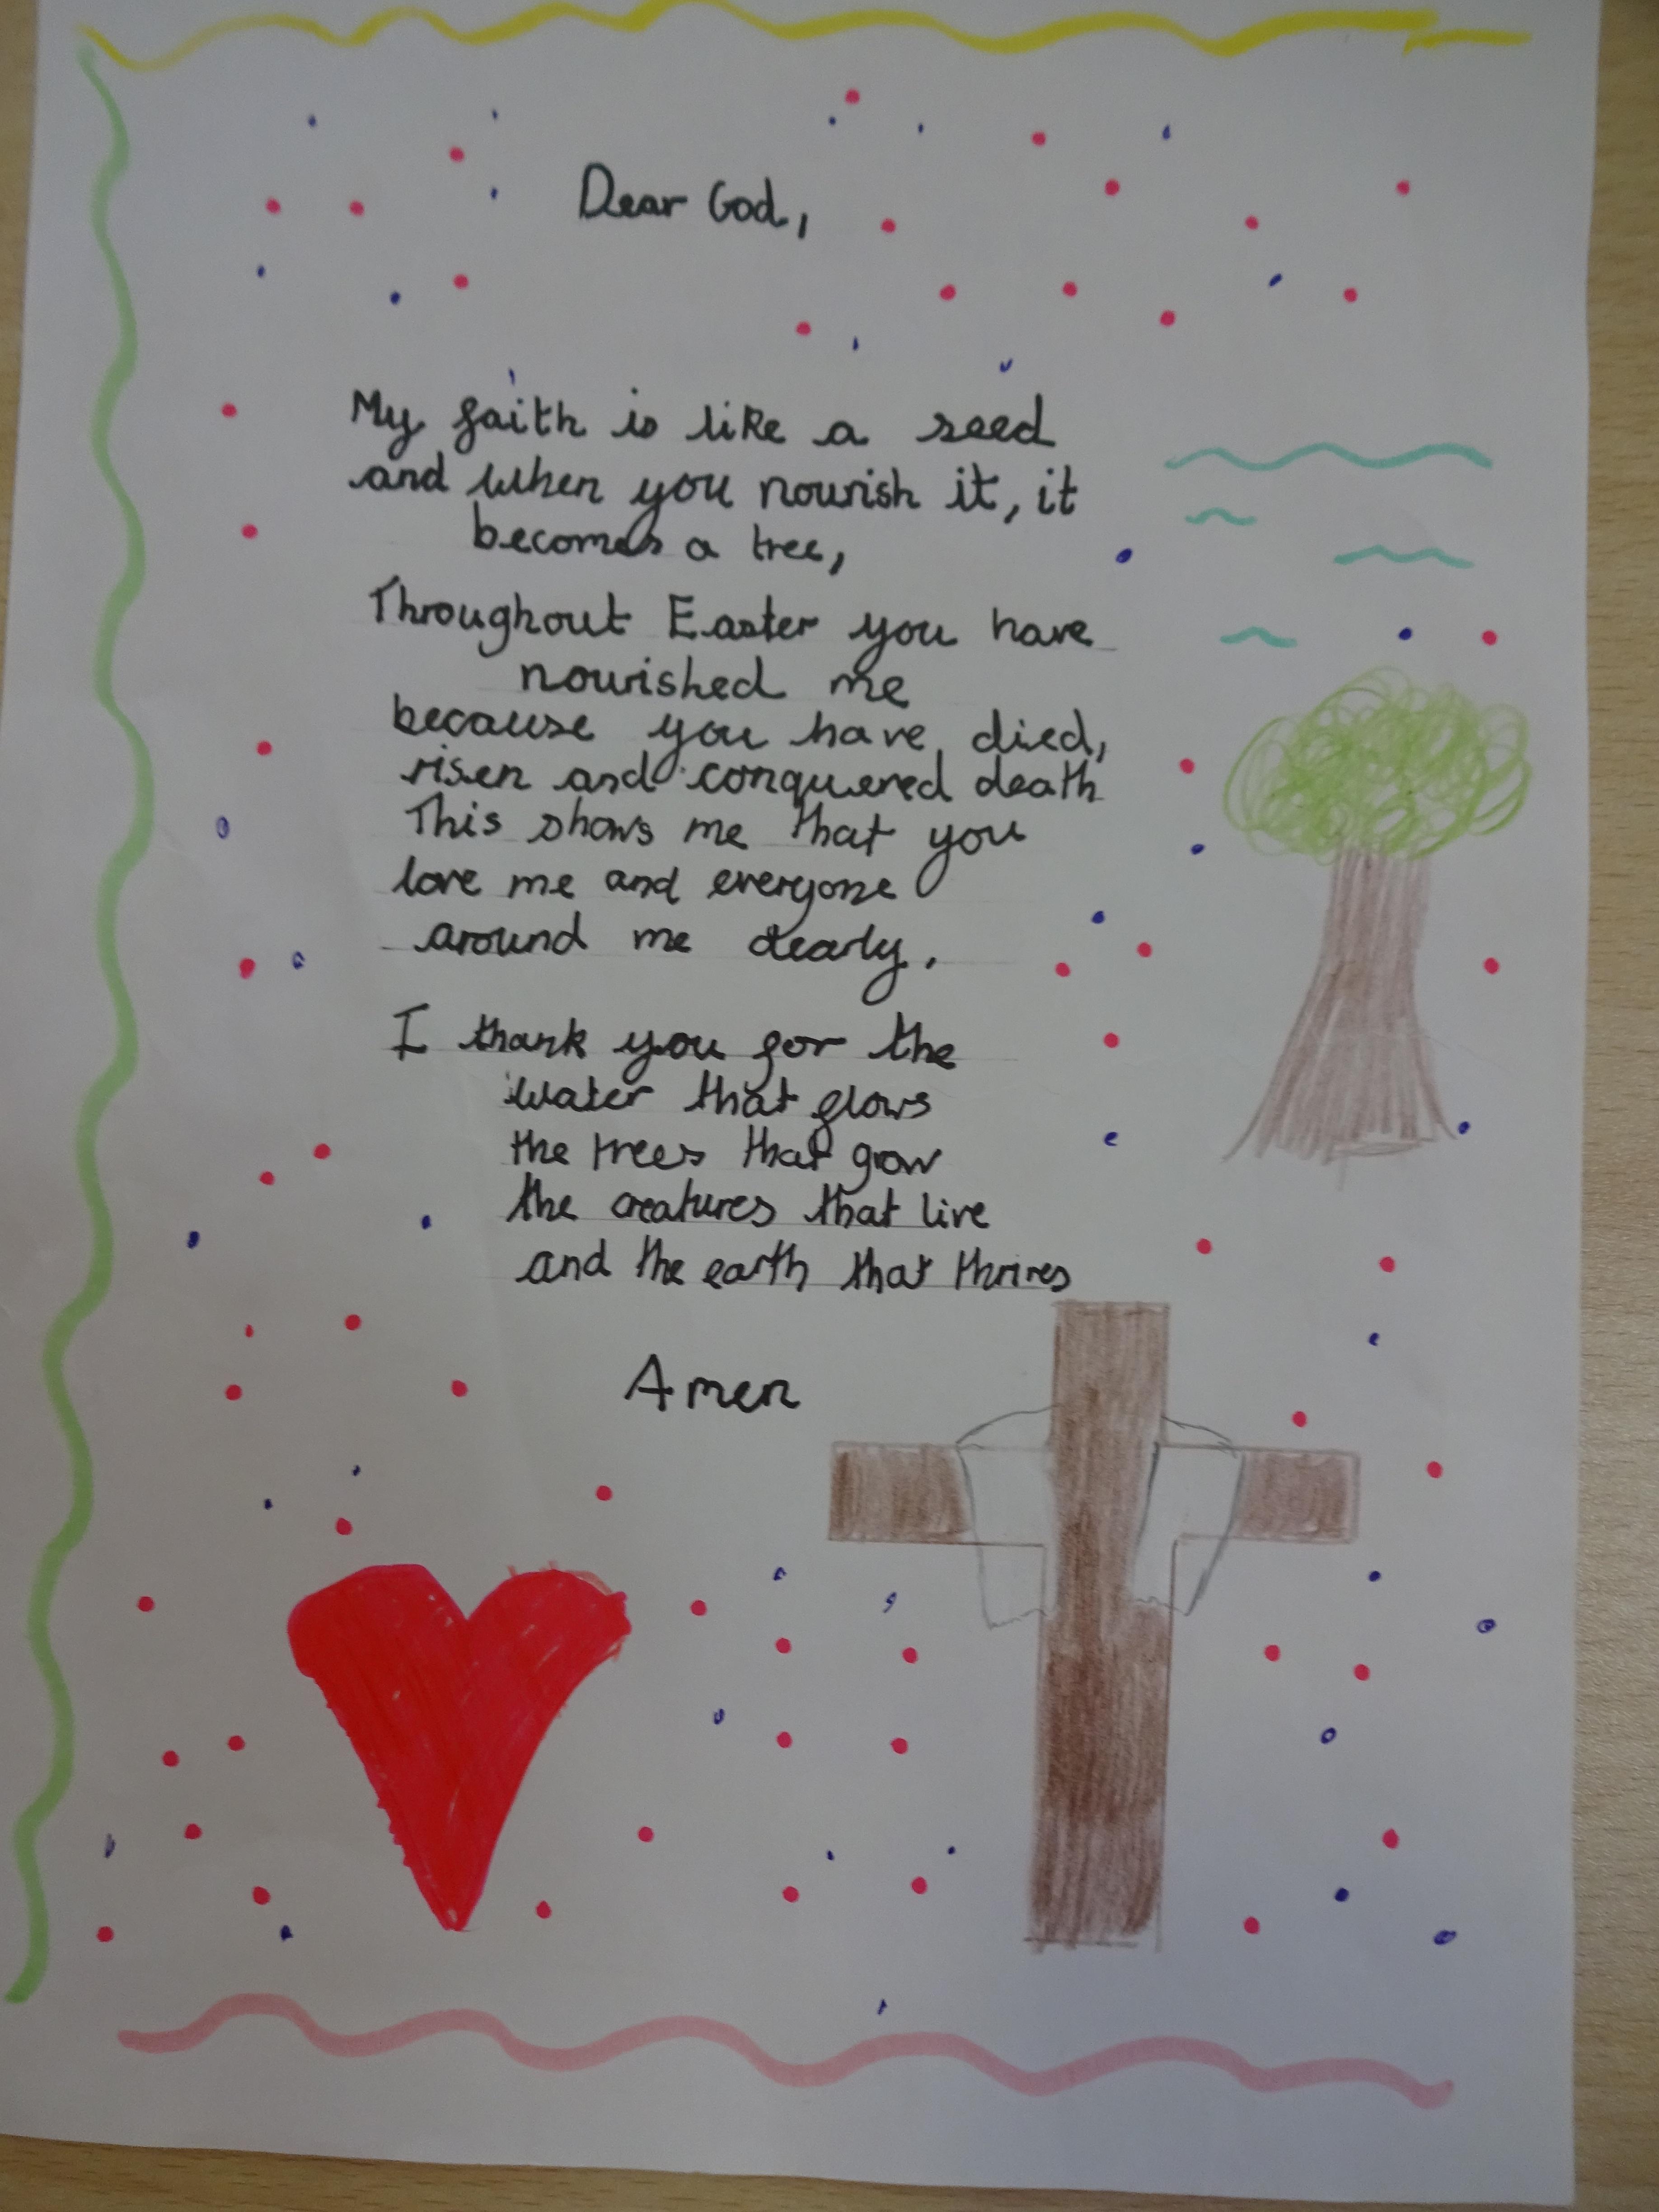 Dear God,
My faith is like a seed
and when you nourish it, it
becomes a tree,
Throughout Easter you have
nourished me
because you have died,
risen and conquered death
This shows me that you
love me and everyone
around me dearly.
I thank you for the
water that flows
the trees that grow
the creatures that live
and the earth that thrives
Amen